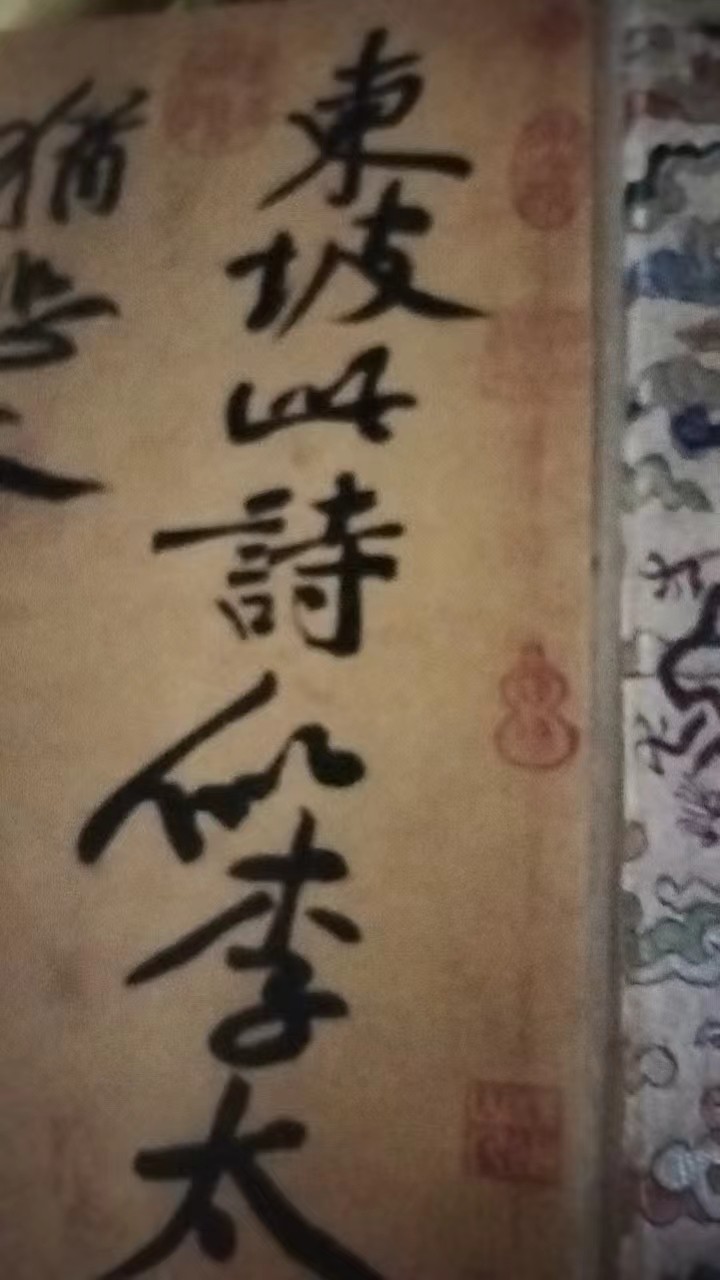 東坡此詩似李太
猶恐太